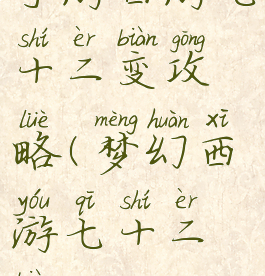 shí èr biàn gōng
十二变攻
lüè mèng huàn xī
略(梦幻西
yóu qī shí èr
游七十二